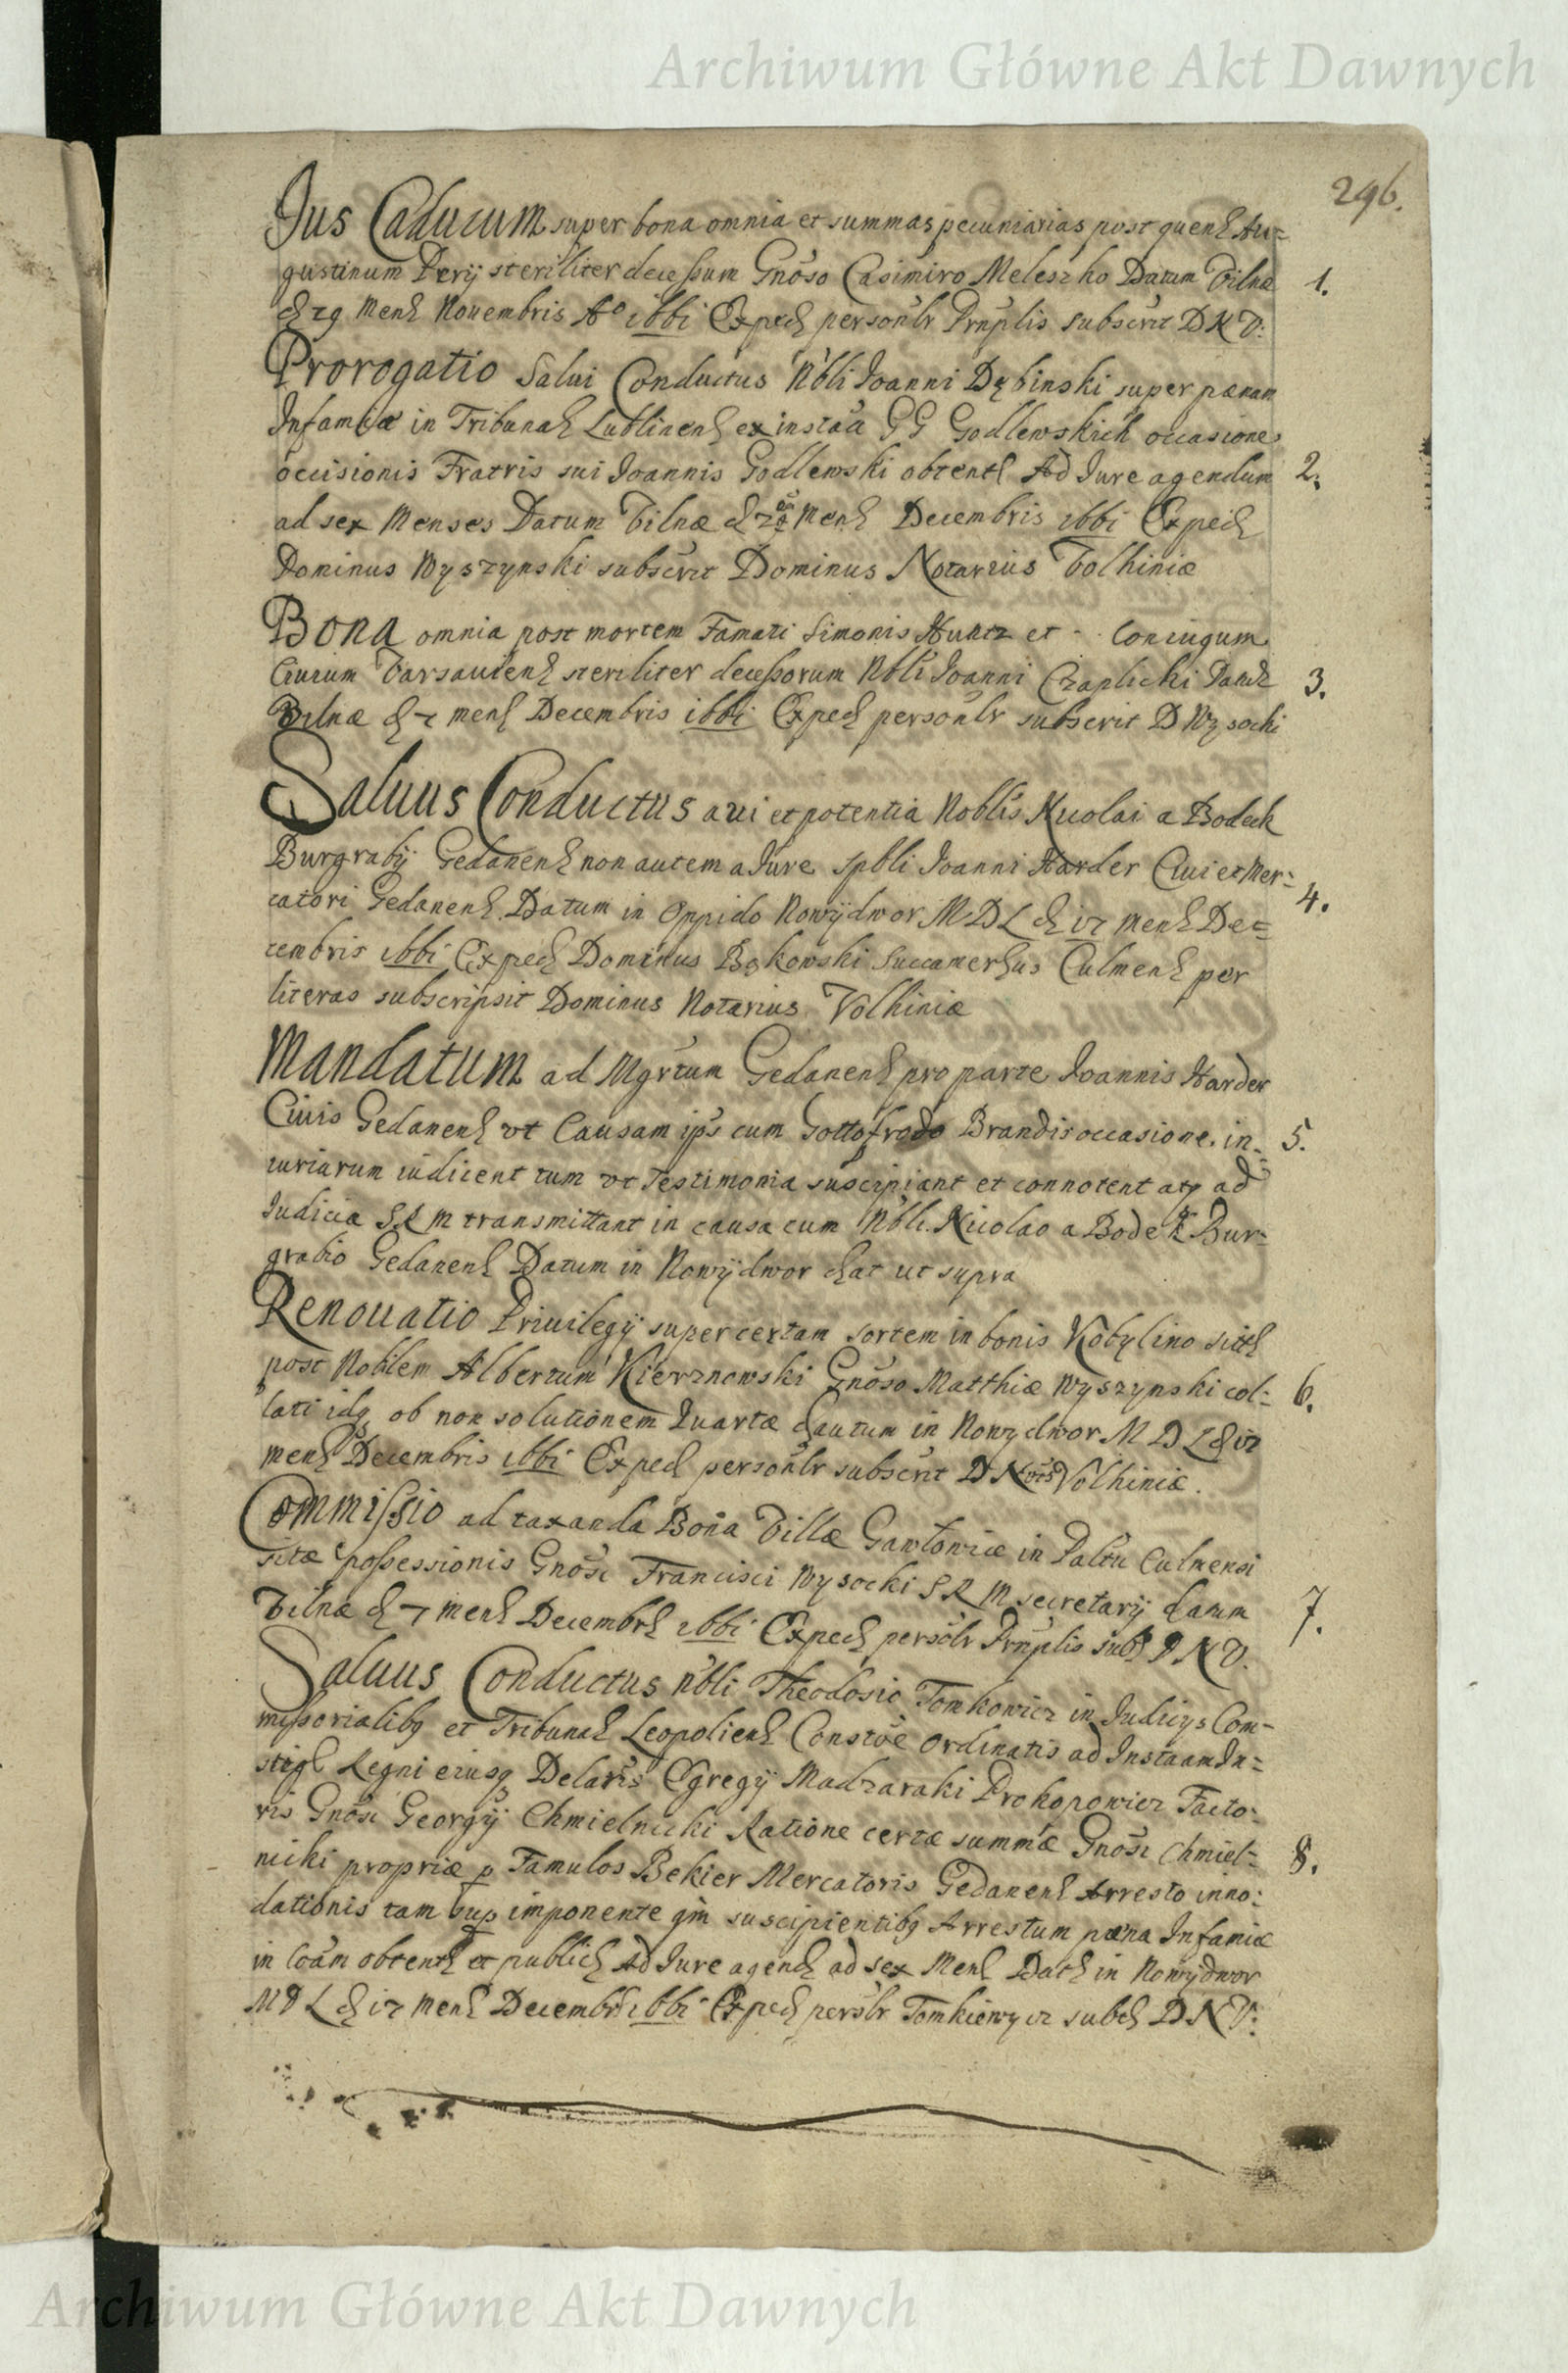 Archiwum Główne Akt Dawnych
296.
Jus Caducum super bona omnia et summas pecuniarias post quend Au=
gustinum steriliter decessum Gnoso Casimiro Meleszko Datum Vilnæ 1.
Mens Nouembris Ao 1661 Exped personlr Prnplis subscrit D N V:
Prorogatio Salui Conductus Nbli Joanni Dębinski super pænam
Infamiæ in Tribunal Lublinens ex instaa GG Godlewskich occasione
occisionis Fratris sui Joannis Godlewski obtent Ad Jure agendum 2.
ad sex Menses Datum Vilnæ d Mens Decembris 1661 Exped
Dominus Wyszynski subscrit Dominus Notarius Volhiniæ
Bona omnia post mortem Famati Simonis Huntz et - . Coniugum
Ciuium Varsauiens steriliter decessorum Nbli Joanni Czaplicki 3.
Vilnæ d 7 mens Decembris 1661 Exped personlr subscrit D Wysocki
Saluus Conductus a ui et potentia Noblis Nicolai a Bodeck
Burgrabij Gedanens non autem a Jure Spbli Joanni Harder Ciui et Mer=
catori Gedanens Datum in Oppido Nowydwor M D L d 17 Mens De= 4.
cembris 1661 Exped Dominus Bąkowski Succamerius Culmens per
literas subscripsit Dominus Notarius Volhiniæ
Mandatum ad Mgrtum Gedanens pro parte Joannis Harder
Ciuis Gedanens vt Causam ips cum Gottofrodo Brandis occasione in= 5.
iuriarum iudicent tum vt Testimonia suscipiant et connotent atq ad
Judicia S R M transmittant in causa cum Nbli Nicolao a Bodek Bur=
grabio Gedanens Datum in Nowydwor ut supra
Renouatio Priuilegij super certam sortem in bonis Kobylino sit
post Nobilem Albertum Kierznowski Gnoso Matthiæ Wyszynski col= 6.
lati idq ob non solutionem Quartæ Datum in Nowydwor M D L d 17
mens Decembris 1661 Exped personlr subscrit D Volhiniæ.
Commissio ad taxanda Bona Villæ Gawłowice in Paltu Culmensi
sitæ possessionis Gnosi Francisci Wysocki S R M secretarij Datum 7.
Vilnæ d 7 mens Decembrs 1661 Exped persolr Prnplis subs D N V.
Saluus Conductus Nbli Theodosio Tomkowicz in Judicys Com=
missorialibq et Tribunal Leopoliens Constoe Ordinatis ad Instaam In=
stigl Regni eiusq Delaris Egregij Madzaraki Prokopowicz Facto=
ris Gnosi Georgij Chmielnicki Ratione certæ summæ Gnosi Chmiel=
nicki propriæ p Famulos Bekier Mercatoris Gedanens Arresto inno= 8.
dationis tam sup imponente qm suscipientibq Arrestum pæna Infamiæ
in Coam obtent et public Ad Jure agend ad sex Mens Dat in Nowydwor
M D L d 17 Mens Decembris 1661 Exped perslr Tomkiewycz subs D N V:
Archiwum Główne Akt Dawnych